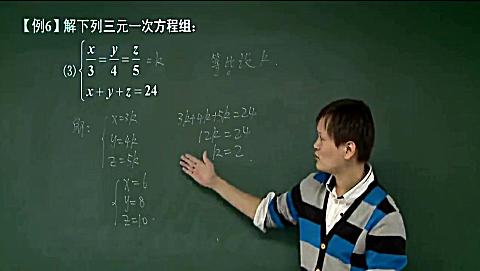 【例6】解下列三元一次方程组:
(3) { x/3 = y/4 = z/5 = k
x + y + z = 24
等比设k.
解: { x=3k
y=4k
z=5k
3k+4k+5k=24
12k=24
k=2.
{ x=6
y=8
z=10.